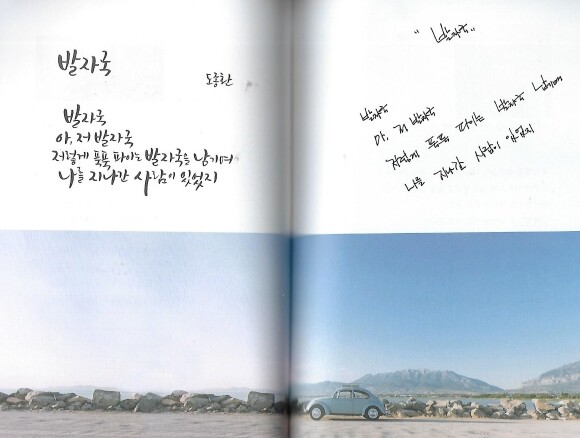 발자국
도종환
발자국
아, 저 발자국
저렇게 푹푹 파이는 발자국을 남기며
나를 지나간 사람이 있었지
"발자국"
발자국
아, 저 발자국
저렇게 푹푹 파이는 발자국 남기며
나를 지나간 사람이 있었지